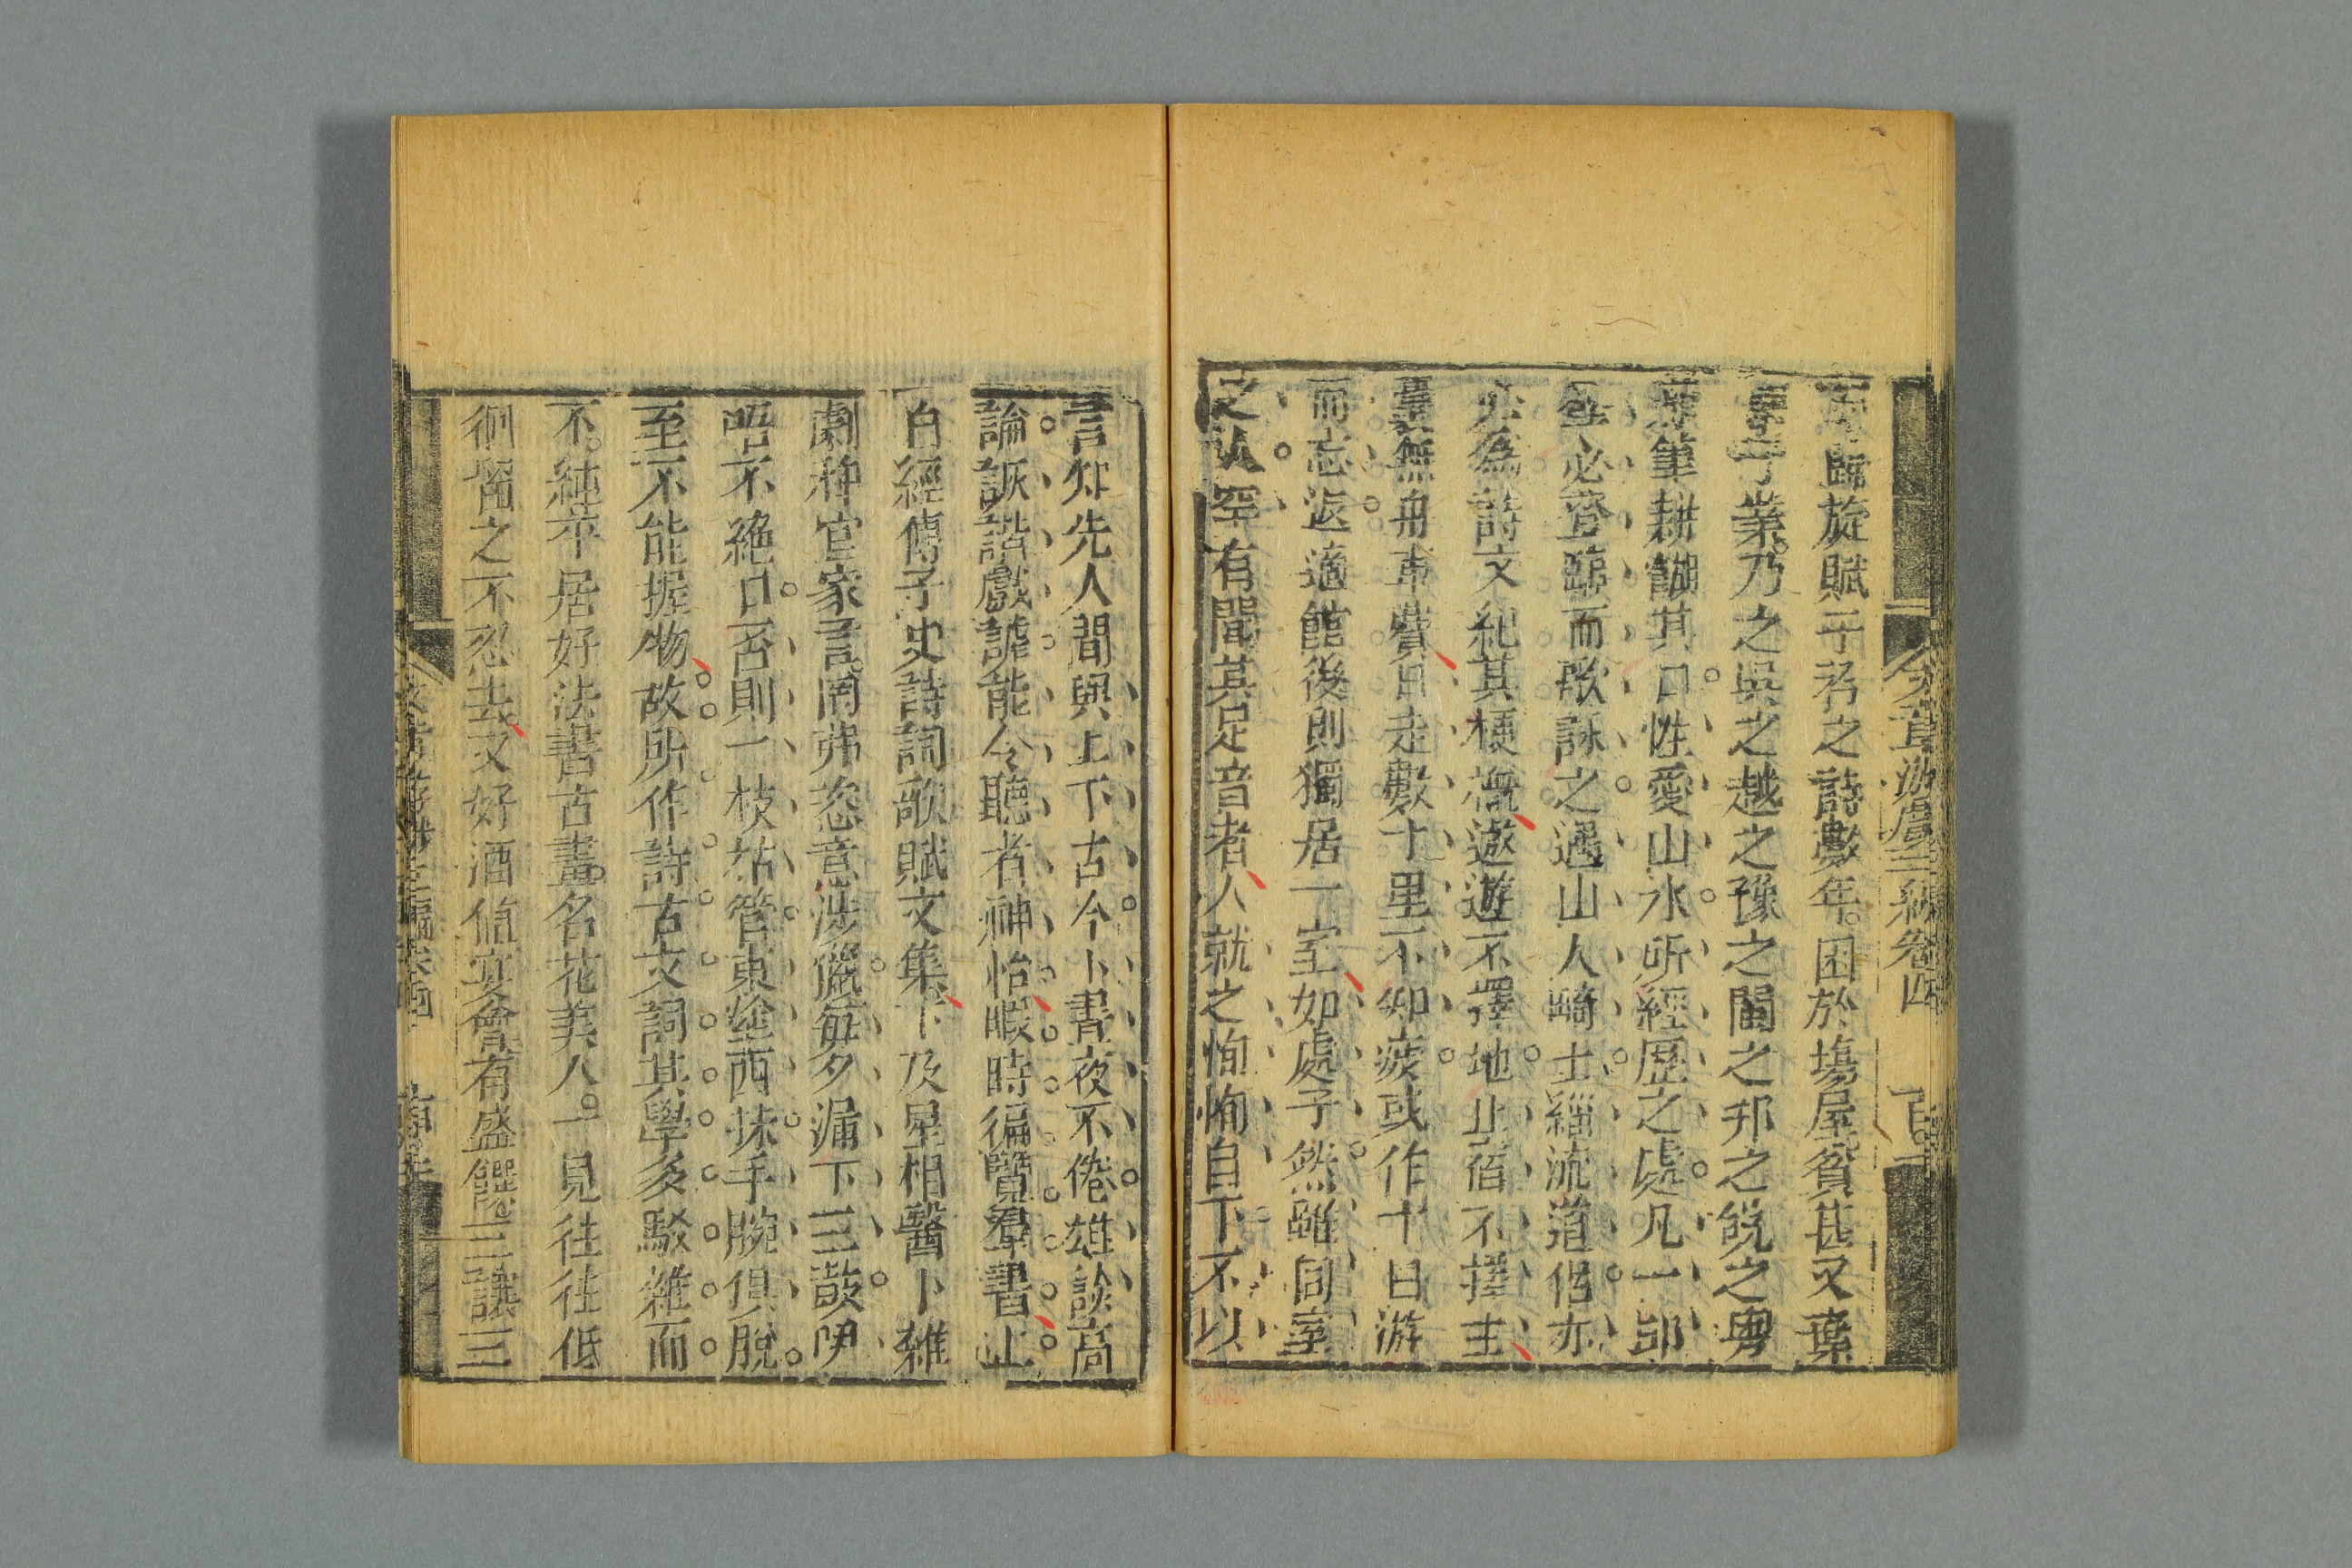 歸旋賦于役之詩數年困於塲屋貧甚又棄
業乃之吳之越之豫之閩之邗之皖之粵
筆耕餬其口性愛山水所經歷之處凡一邱
一壑必登臨而歌詠之遇山人騎士緇流道侶亦
必為詩文紀其梗概遨遊不擇地止宿不擇主
無舟車費日走數十里不知疲或作十日游
而忘返適館後則獨居一室如處子然雖同室
之人罕有聞其足音者人就之恂恂自下不以
言知先人間與上下古今卜晝夜不倦雄談高
論詼諧戲謔能令聽者神怡暇時徧覽羣書上
自經傳子史詩詞歌賦文集下及星相醫卜雜
劇稗官家言罔弗恣意涉獵每夕漏下三鼓伊
唔不絕口否則一枝枯管東塗西抹手腕俱脫
至不能握物故所作詩古文詞其學多駁雜而
不純平居好法書古畫名花美人一見往往低
徊留之不忍去又好酒値宴會有盛饌三讓三